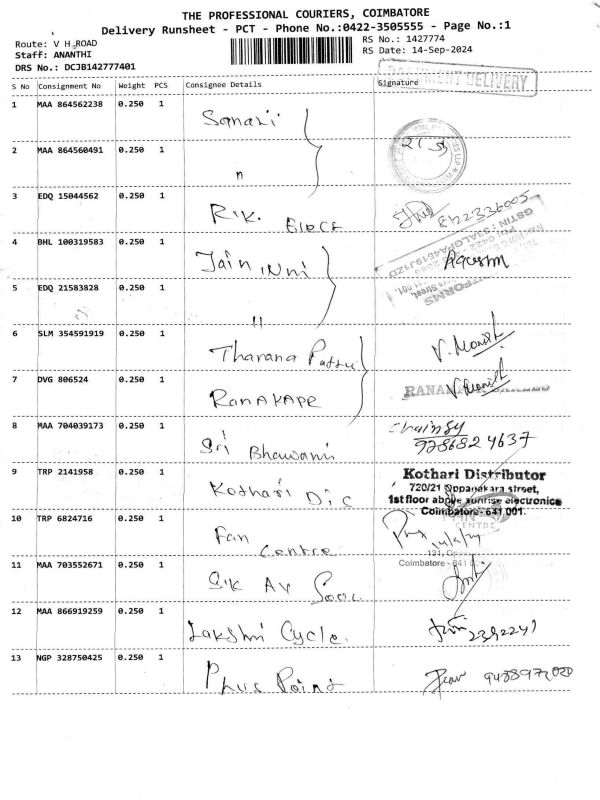 THE PROFESSIONAL COURIERS, COIMBATORE
Delivery Runsheet - PCT - Phone No.:0422-3505555 - Page No.:1
Route: V H ROAD
RS No.: 1427774
Staff: ANANTHI
RS Date: 14-Sep-2024
DRS No.: DCJB142777401
DOCUMENT DELIVERY
S No Consignment No Weight PCS Consignee Details Signature
1 MAA 864562238 0.250 1
2 MAA 864560491 0.250 1 "
3 EDQ 15044562 0.250 1 R.K. 8122336005
4 BHL 100319583 0.250 1 Jain
5 EDQ 21583828 0.250 1 "
6 SLM 354591919 0.250 1 Tharana V. Monish
7 DVG 806524 0.250 1 RANAKAPR V. Monish
8 MAA 704039173 0.250 1 Sri Bhawani 9786824637
9 TRP 2141958 0.250 1 Kothari Dic
Kothari Distributor
720/21 Oppanakara street,
1st floor above sunrise electronics
Coimbatore-641 001.
10 TRP 6824716 0.250 1 Fan Centre
CENTRE
Coimbatore - 641
11 MAA 703552671 0.250 1
12 MAA 866919259 0.250 1 Lakshmi Cycle. 2392241
13 NGP 328750425 0.250 1 Plus Point